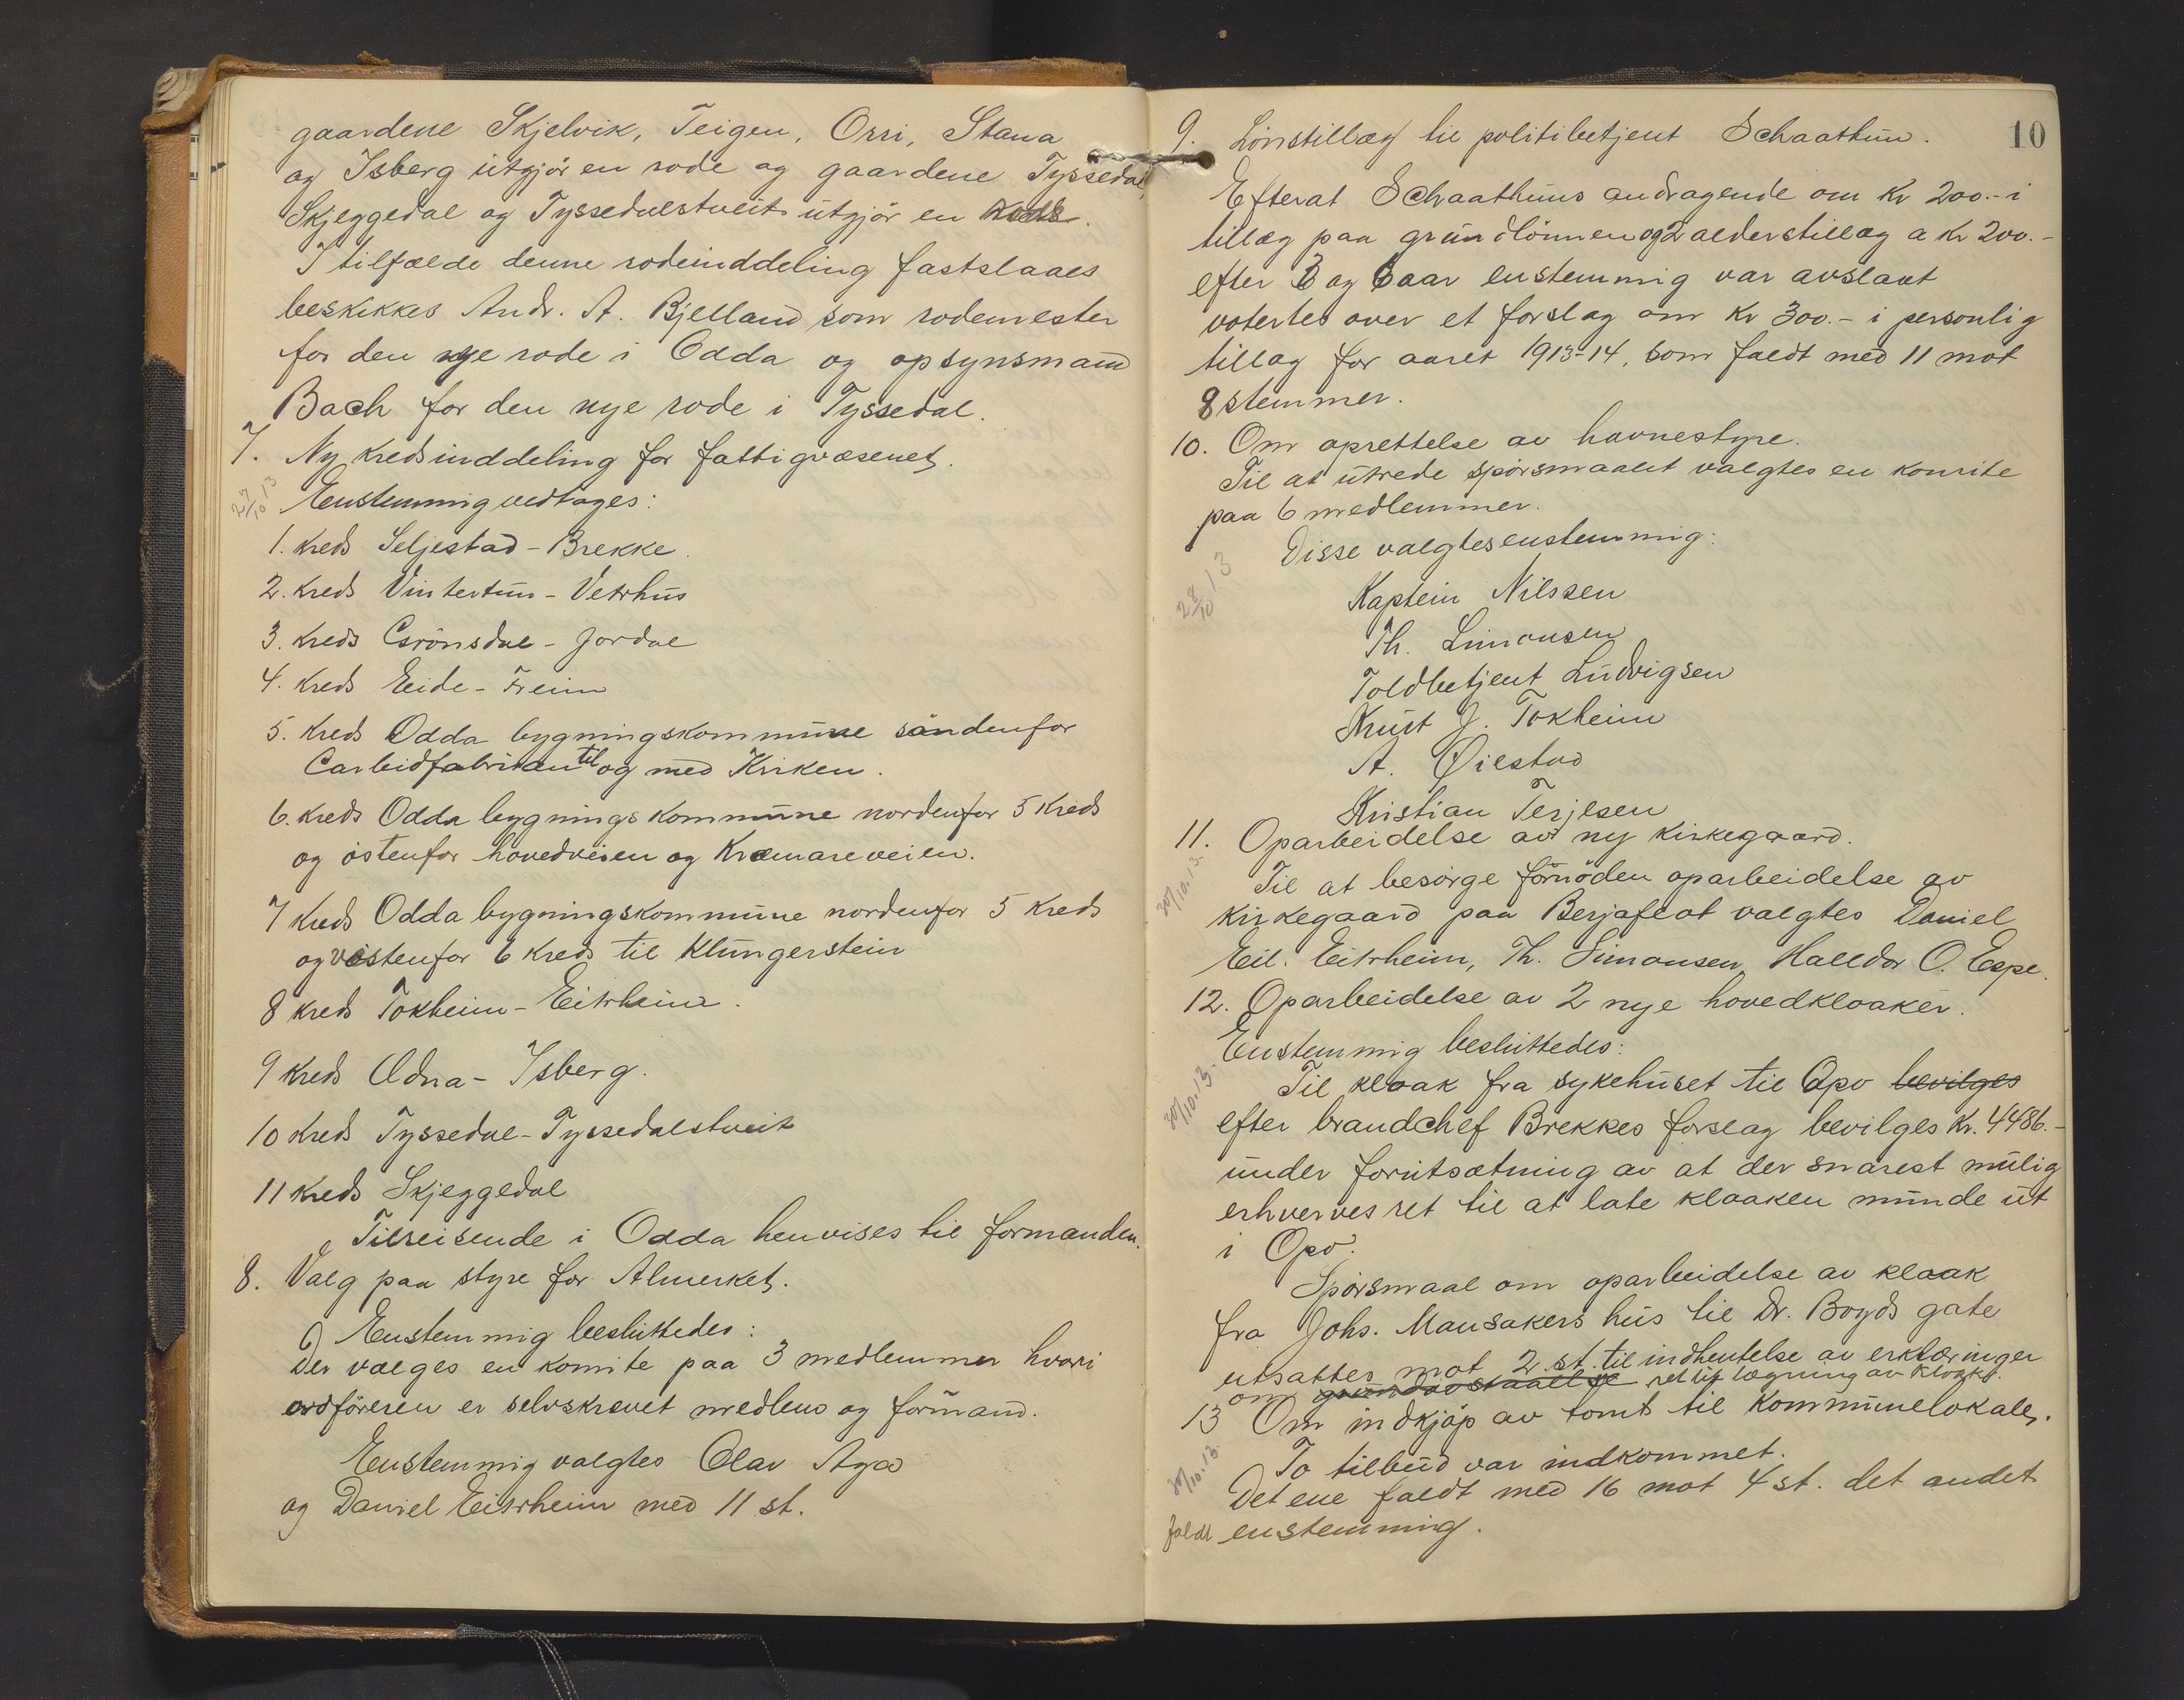 gaardene Skjelvik, Teigen, Orri, Stana
og Isberg utgjör en rode og gaardene Tyssedal,
Skjeggedal og Tyssedalstveit utgjör en rode.
I tilfælde denne rodeinddeling fastslaaes
beskikkes Andr. A. Bjelland som rodemester
for den nye rode i Odda og opsynsmand
Bach for den nye rode i Tyssedal.
7. Ny kredsinddeling for fattigvæsenet.
27/10 13
Eenstemmig vedtages:
1. kreds Seljestad - Brekke.
2. kreds Vintertun - Vetrhus
3. kreds Grönsdal - Jordal
4. kreds Eide - Freim
5. kreds Odda bygningskommune söndenfor
Carbidfabriken til og med Kirken.
6. kreds Odda bygningskommune nordenfor 5 kreds
og östenfor hovedveien og Kremareveien.
7 kreds Odda bygningskommune nordenfor 5 kreds
og vestenfor 6 kreds til Klungerstein
8 kreds Tokheim - Eitrheim.
9 kreds Odna - Isberg.
10 kreds Tyssedal - Tyssedalstveit
11 kreds Skjeggedal
Tilreisende i Odda henvises til formanden.
8. Valg paa styre for Almerket.
Eenstemmig besluttedes:
Der vælges en komite paa 3 medlemmer hvori
ordföreren er selvskrevet medlem og formand.
Eenstemmig valgtes Olav Aga
og Daniel Eitrheim med 11 st.
10
9. Lönstillæg til politibetjent Schaathun.
Efterat Schaathuns andragende om Kr 200.- i
tillæg paa grundlönnen og 2 alderstillæg a Kr 200.-
efter 3 og 6 aar enstemmig var avslaat
votertes over et forslag om Kr 300.- i personlig
tillæg for aaret 1913-14, som faldt med 11 mot
8 stemmer.
10. Om oprettelse av havnestyre.
Til at utrede spörsmaalet valgtes en komite
paa 6 medlemmer.
Disse valgtes enstemmig:
28/10 13
Kaptein Nilssen
Th. Simonsen
Toldbetjent Ludvigsen
Knut J. Tokheim
A. Øiestad
Kristian Terjesen
11. Oparbeidelse av ny kirkegaard.
30/10.13.
Til at besörge fornöden oparbeidelse av
kirkegaard paa Berjaflot valgtes Daniel
Eil. Eitrheim, Th. Simonsen, Halldor O. Espe.
12. Oparbeidelse av 2 nye hovedkloaker.
Eenstemmig besluttedes:
30/10.13.
Til kloak fra sykehuset til Opo bevilges
efter brandchef Brekkes forslag bevilges Kr. 4486.-
under forutsætning av at der snarest mulig
erhverves ret til at late kloaken munde ut
i Opo.
Spörsmaal om oparbeidelse av kloak
fra Johs. Mansakers hus til Dr. Boyds gate
utsattes mot 2 st. til indhentelse av erklæringer
om grundavstaaelse ret til lægning av kloak.
13 Om indkjöp av tomt til kommunelokale.
30/10.13.
To tilbud var indkommet.
Det ene faldt med 16 mot 4 st. det andet
faldt enstemmig.